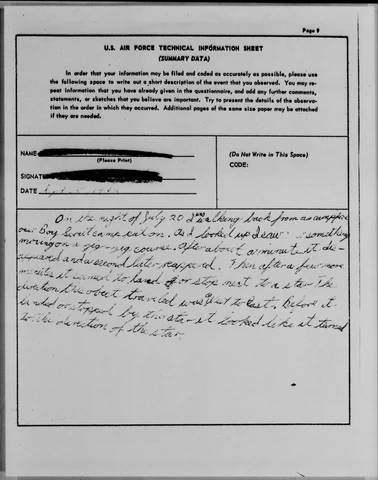 Page 9
U.S. AIR FORCE TECHNICAL INFORMATION SHEET
(SUMMARY DATA)
In order that your information may be filed and coded as accurately as possible, please use
the following space to write out a short description of the event that you observed. You may re-
peat information that you have already given in the questionnaire, and add any further comments,
statements, or sketches that you believe are important. Try to present the details of the observa-
tion in the order in which they occurred. Additional pages of the same size paper may be attached
if they are needed.
NAME
(Please Print)
SIGNAT
DATE
(Do Not Write in This Space)
CODE:
On the night of July 20 I was walking back from a campfire
our Boy Scout camp eat on. As I looked up I saw something
moving on a zig-zig course. After about a minute it dis-
appeared and a second later reappeard. Then after a few more
minutes it seemed to land or stop next to a star The
direction this obect traveled was West to East. Before it
landed or stopped by the star it looked like it turned
to the direction of the star